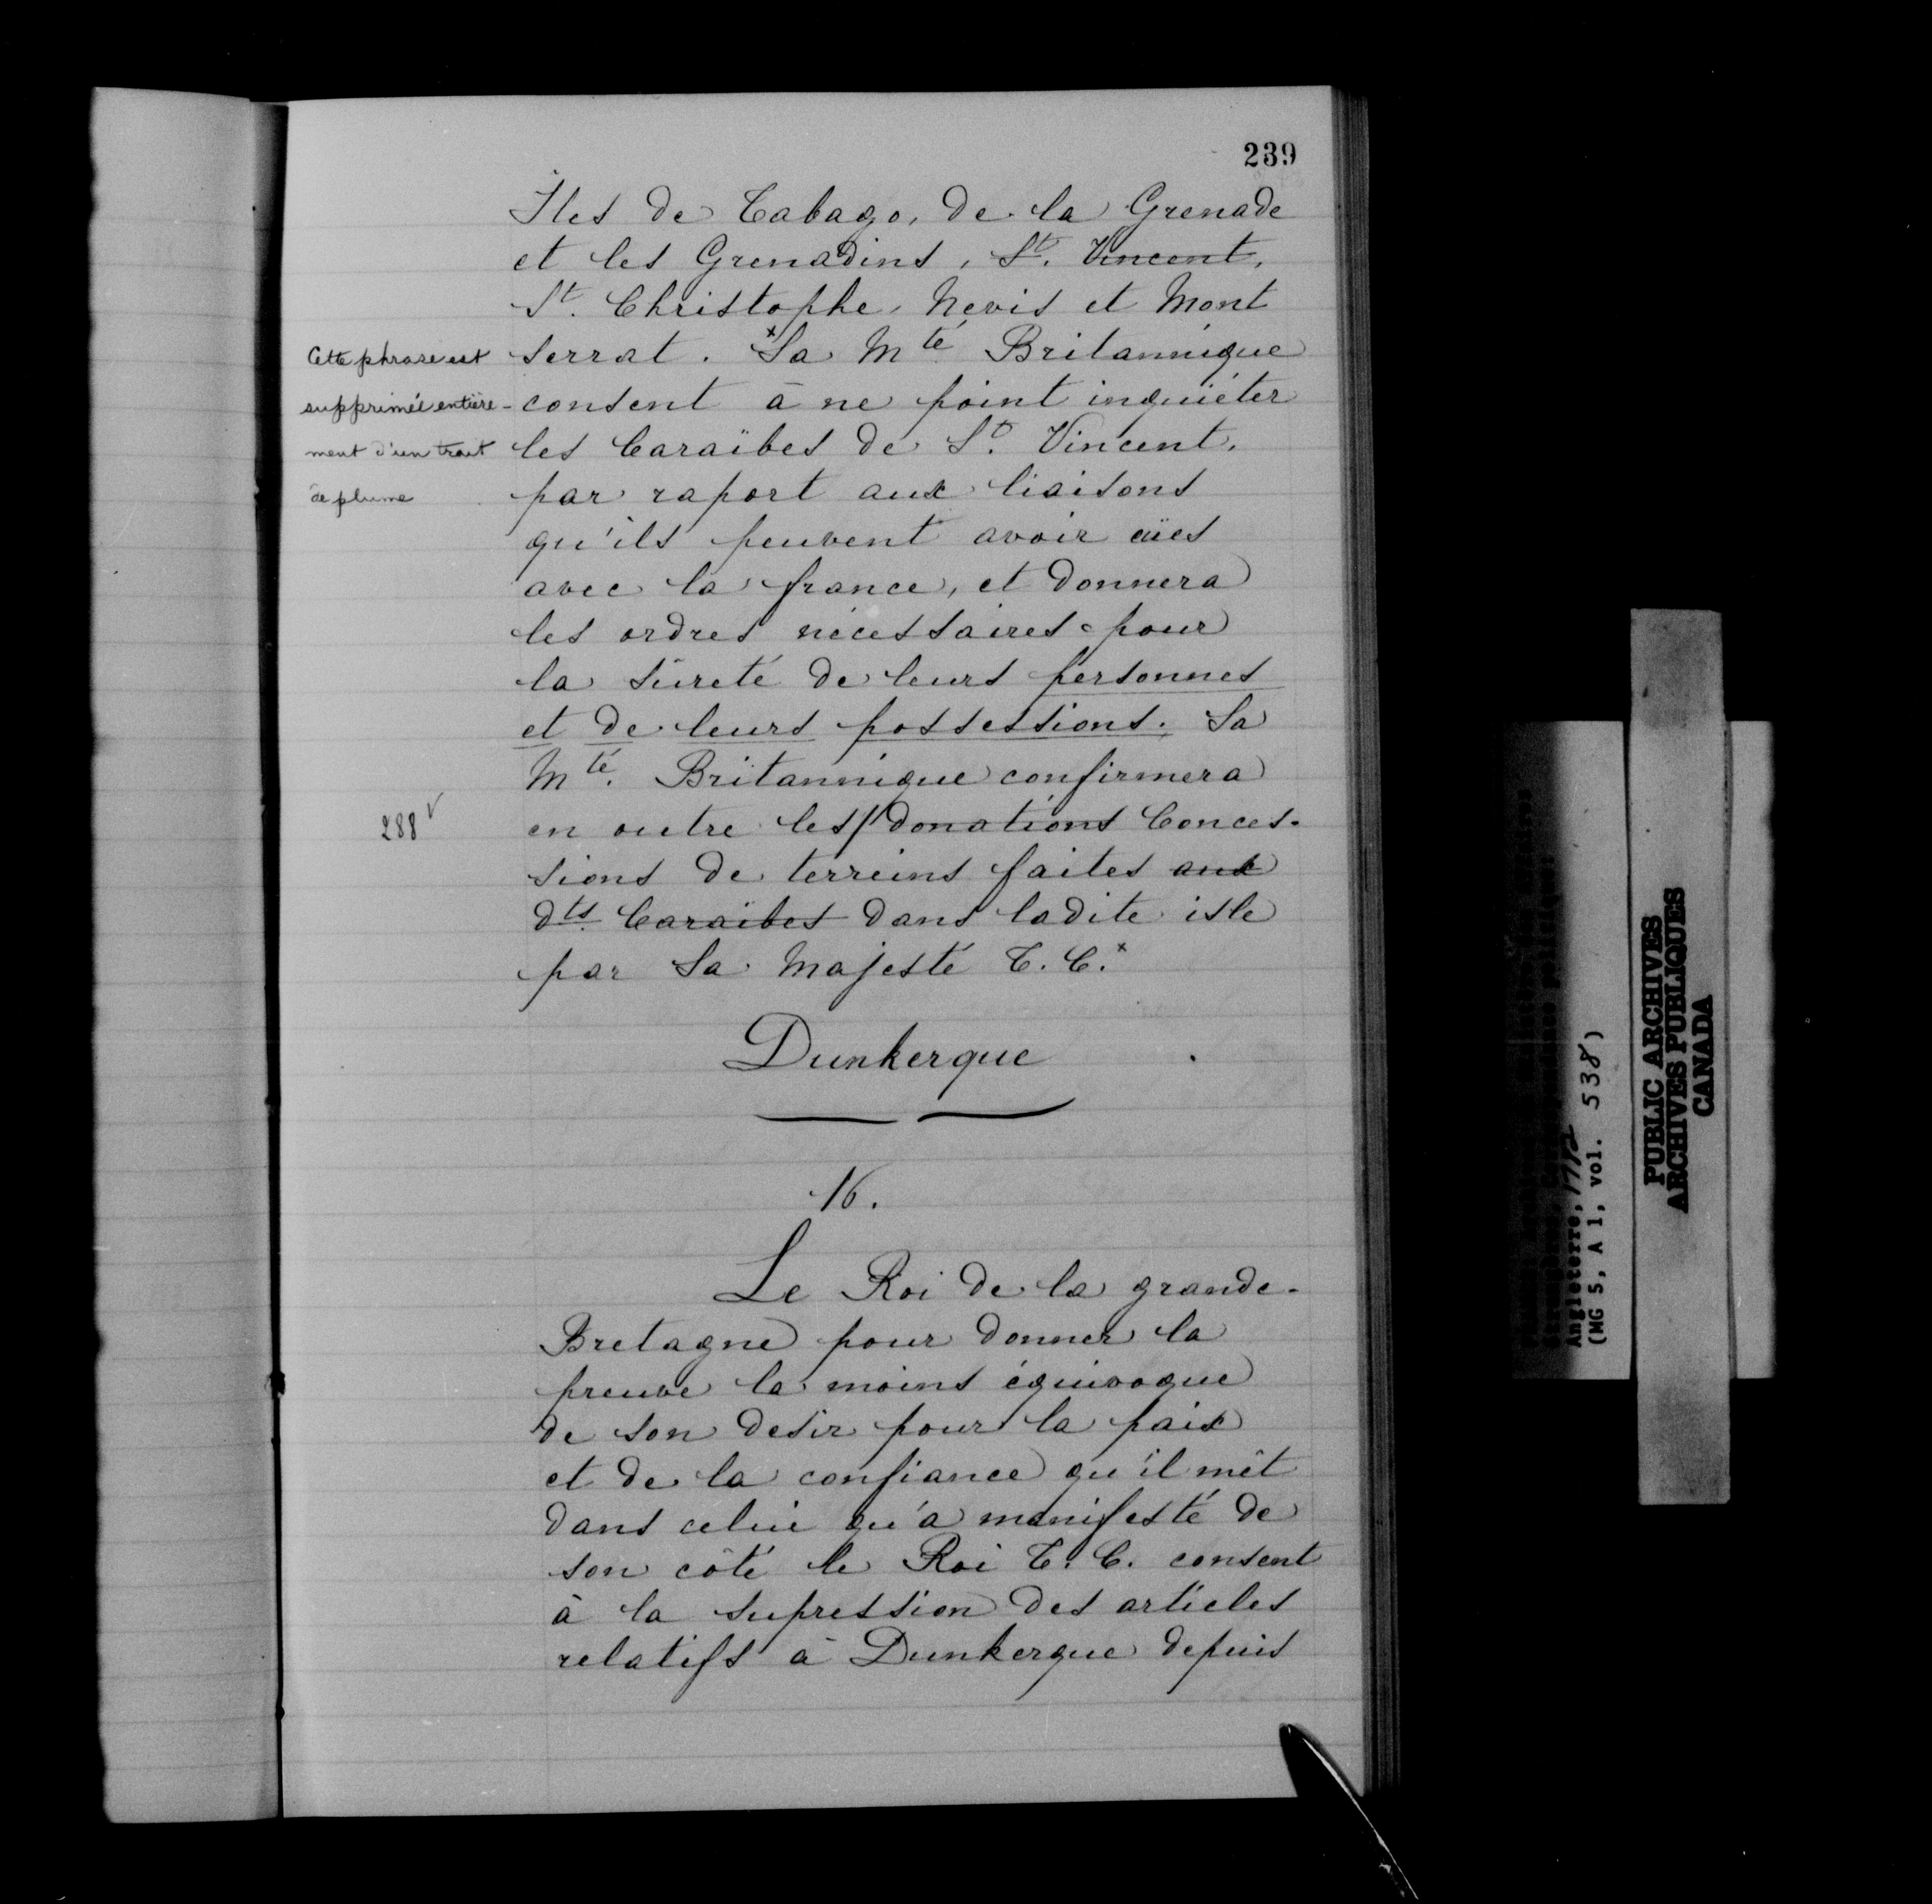 239
Iles de Tabago, de la Grenade
et les Grenadins, St. Vincent,
St. Christophe, Nevis et Mont
serrat. *Sa Mté Britannique
consent à ne point inquiéter
les Caraïbes de St. Vincent,
par raport aux liaisons
qu'ils peuvent avoir eües
avec la france, et donnera
les ordres nécessaires pour
la sûreté de leurs personnes
et de leurs possessions. Sa
Mté. Britannique confirmera
en outre les/ donations Conces-
sions de terreins faites aux
dts. Caraïbes dans ladite isle
par Sa Majesté T. C.*
Cette phrase est
supprimée entière-
ment d'un trait
de plume
288v
Dunkerque
16.
Le Roi de la grande-
Bretagne pour donner la
preuve la moins équivoque
de son desir pour la paix
et de la confiance qu'il mêt
dans celui qu'a manifesté de
son côté le Roi T. C. consent
à la supression des articles
relatifs à Dunkerque depuis
Angleterre,
(MG 5, A 1, vol. 538)
PUBLIC ARCHIVES
ARCHIVES PUBLIQUES
CANADA